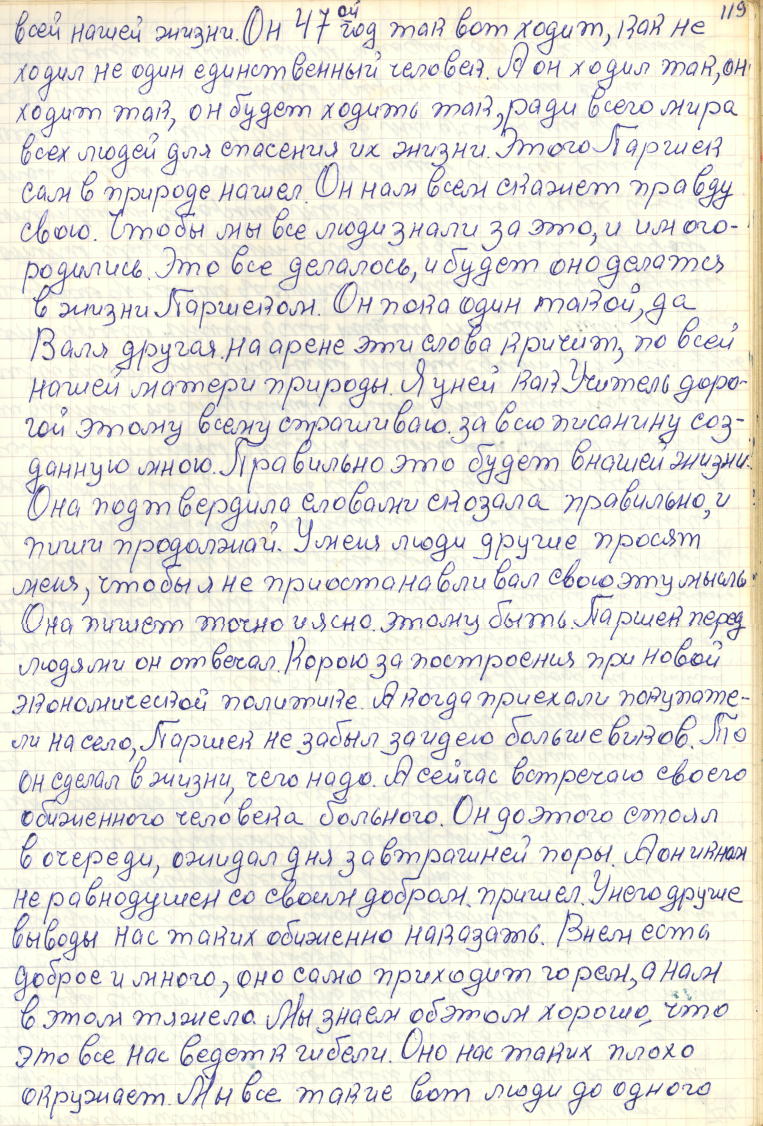 119
всей нашей жизни. Он 47ой год так вот ходит, как не
ходил не один единственный человек. А он ходил так, он
ходит так, он будет ходить так, ради всего мира
всех людей для спасения их жизни. Этого Паршек
сам в природе нашел. Он нам всем скажет правду
свою. Чтобы мы все люди знали за это, и им ого-
родились. Это все делалось, и будет оно делатся
в жизни Паршеком. Он пока один такой, да
Валя другая на арене эти слова кричит, по всей
нашей матери природы. Я у ней как Учитель доро-
гой этому всему страшиваю за всю писанину соз-
данную мною. Правильно это будет в нашей жизни.
Она подтвердила словами скозала правильно, и
пиши продолжай. У меня люди другие просят
меня, чтобы я не приостанавливал свою эту мысль
Она пишет точно и ясно. этому быть. Паршек перед
людями он отвечал. Корою за построения при новой
экономической политике. А когда приехали покупате-
ли на село, Паршек не забыл за идею большевиков. То
он сделал в жизни, чего надо. А сейчас встречаю своего
обиженного человека больного. Он до этого стоял
в очереди, ожидал дня завтрашней поры. А он к нам
не равнодушен со своим добром пришел. У него другие
выводы нас таких обиженно наказать. В нем есть
доброе и много, оно само приходит горем, а нам
в этом тяжело. Мы знаем об этом хорошо, что
это все нас ведет к гибели. Оно нас таких плохо
окружает. Мы все такие вот люди до одного